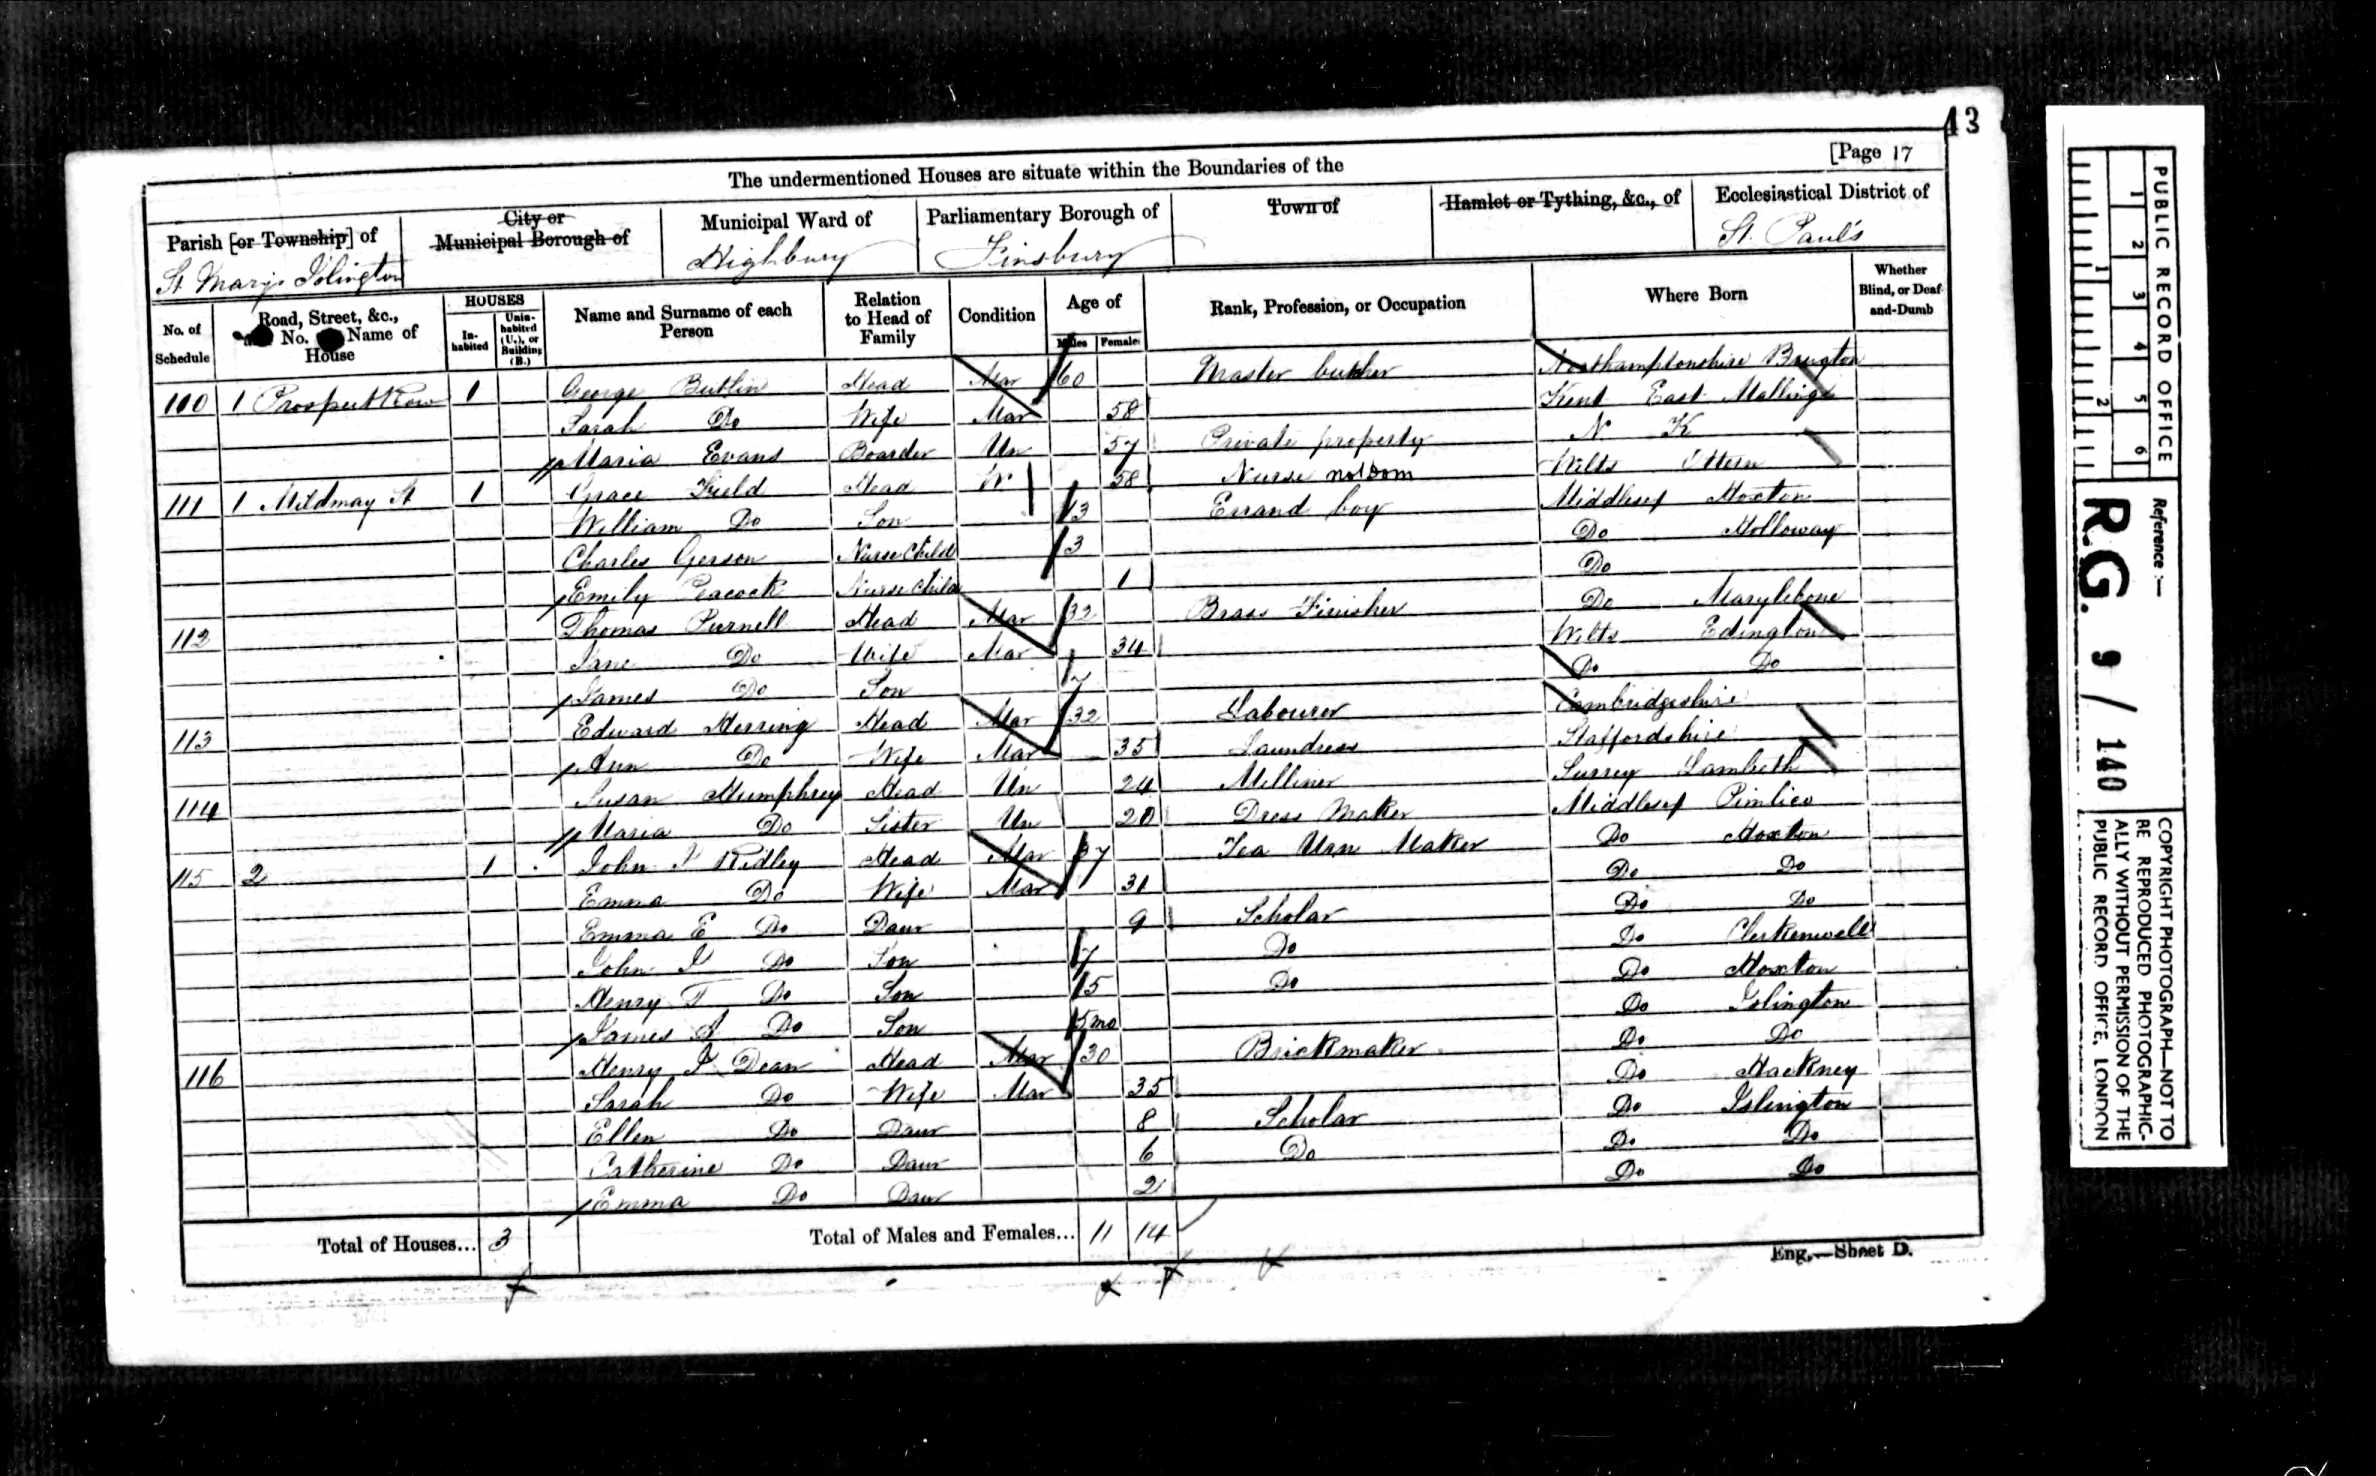 43
[Page 17
The undermentioned Houses are situate within the Boundaries of the
Parish [or Township] of St Marys Islington
City or Municipal Borough of
Municipal Ward of Highbury
Parliamentary Borough of Finsbury
Town of
Hamlet or Tything, &c., of
Ecclesiastical District of St. Paul's
No. of Schedule
Road, Street, &c., and No. Name of House
HOUSES
Inhabited
Uninhabited (U.), or Building (B.)
Name and Surname of each Person
Relation to Head of Family
Condition
Age of
Males Females
Rank, Profession, or Occupation
Where Born
Whether Blind, or Deaf-and-Dumb
110 1 Prospect Row 1 George Butlin Head Mar 60 Master butcher Northamptonshire
Sarah Do Wife Mar 58 Kent East Malling
Maria Evans Boarder Un 57 Private property N K
111 1 Mildmay St 1 Grace Field Head W 58 Nurse not Dom Wilts
William Do Son 13 Errand boy Middlesex Hoxton
Charles Gerson Nurse Child 3 Do Holloway
Emily Peacock Nurse Child 1 Do
112 Thomas Purnell Head Mar 32 Brass Finisher Do Marylebone
Jane Do Wife Mar 34 Wilts Edington
James Do Son 7 Do Do
113 Edward Herring Head Mar 32 Labourer Cambridgeshire
Ann Do Wife Mar 35 Laundress Staffordshire
114 Susan Humphrey Head Un 24 Milliner Surrey Lambeth
Maria Do Sister Un 20 Dress Maker Middlesex Pimlico
115 2 1 John Ridley Head Mar 37 Tea Urn Maker Do Hoxton
Emma Do Wife Mar 31 Do Do
Emma E Do Daur 9 Scholar Do Do
John J Do Son 7 Do Do Clerkenwell
Henry T Do Son 5 Do Do Hoxton
James Do Son 5 mo Do Islington
116 Henry J Dean Head Mar 30 Brickmaker Do Do
Sarah Do Wife Mar 35 Do Hackney
Ellen Do Daur 8 Scholar Do Islington
Catherine Do Daur 6 Do Do Do
Emma Do Daur 2 Do Do
Total of Houses... 3
Total of Males and Females... 11 14
Eng.—Sheet D.
PUBLIC RECORD OFFICE
1 2 3 4 5 6
1 2
Reference:—
R.G. 9 / 140
COPYRIGHT PHOTOGRAPH—NOT TO
BE REPRODUCED PHOTOGRAPHIC-
ALLY WITHOUT PERMISSION OF THE
PUBLIC RECORD OFFICE, LONDON